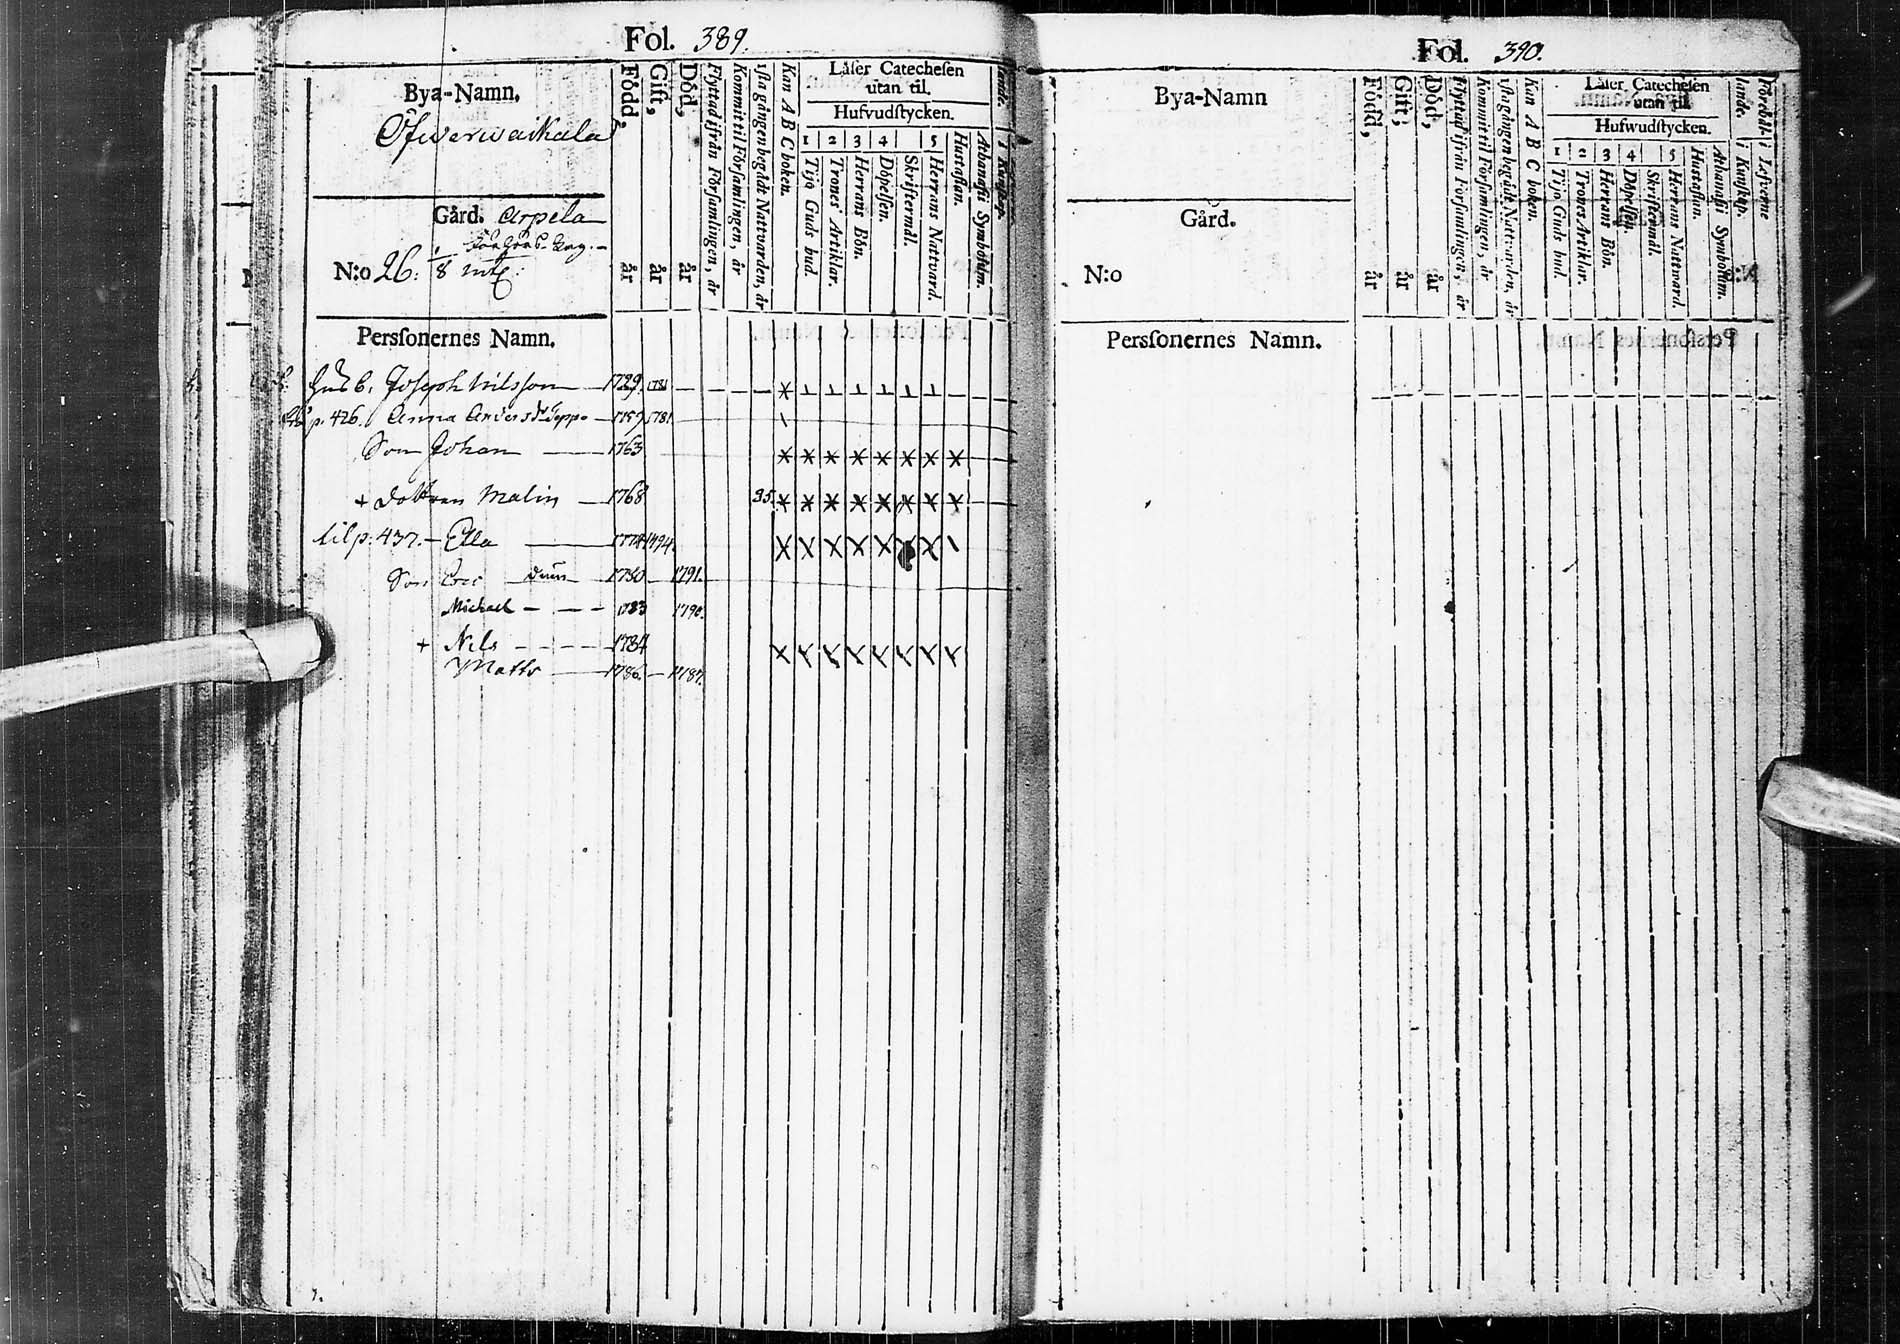 Fol. 389.
Bya-Namn.
Öfwerwaikala
Gård. Arpela
N:o 26: 1/8 mtl:
Född, år
Gift, år
Död, år
Flyttad ifrån Församlingen, år
Kommit til Församlingen, år
ista gången begådt Nattvarden, år
Kan A B C boken.
Låſer Catecheſen
utan til.
Hufvudſtycken.
1 2 3 4 5
Tijo Guds bud.
Trones Artiklar.
Herrans Bön.
Döpelſen.
Skriftermål.
Herrans Nattvard.
Huſtaflan.
Athanaſii Symbolum.
Perſſonernes Namn.
Husb. Joseph Nilsson 1729. 1781
p. 426. Anna Andersdr 1759 1781.
Son Johan 1763
+ Dottren Malin 1768 95.
til p: 437. Ella 1774 1794.
Son Eric 1780 1791.
Michael 1783 1790.
+ Nils 1784
Matts 1786. 1787.
Fol. 390.
Bya-Namn
Gård.
N:o
Född, år
Gift, år
Död, år
Flyttad ifrån Församlingen, år
Kommit til Församlingen, år
ista gången begådt Nattvarden, år
Kan A B C boken.
Låſer Catecheſen
utan til.
Hufwudſtycken.
1 2 3 4 5
Tijo Guds bud.
Trones Artiklar.
Herrans Bön.
Döpelſen.
Skriftermål.
Herrans Nattward.
Huſtaflan.
Athanaſii Symbolum.
i Kunſkap.
i Lefverne
Perſſonernes Namn.